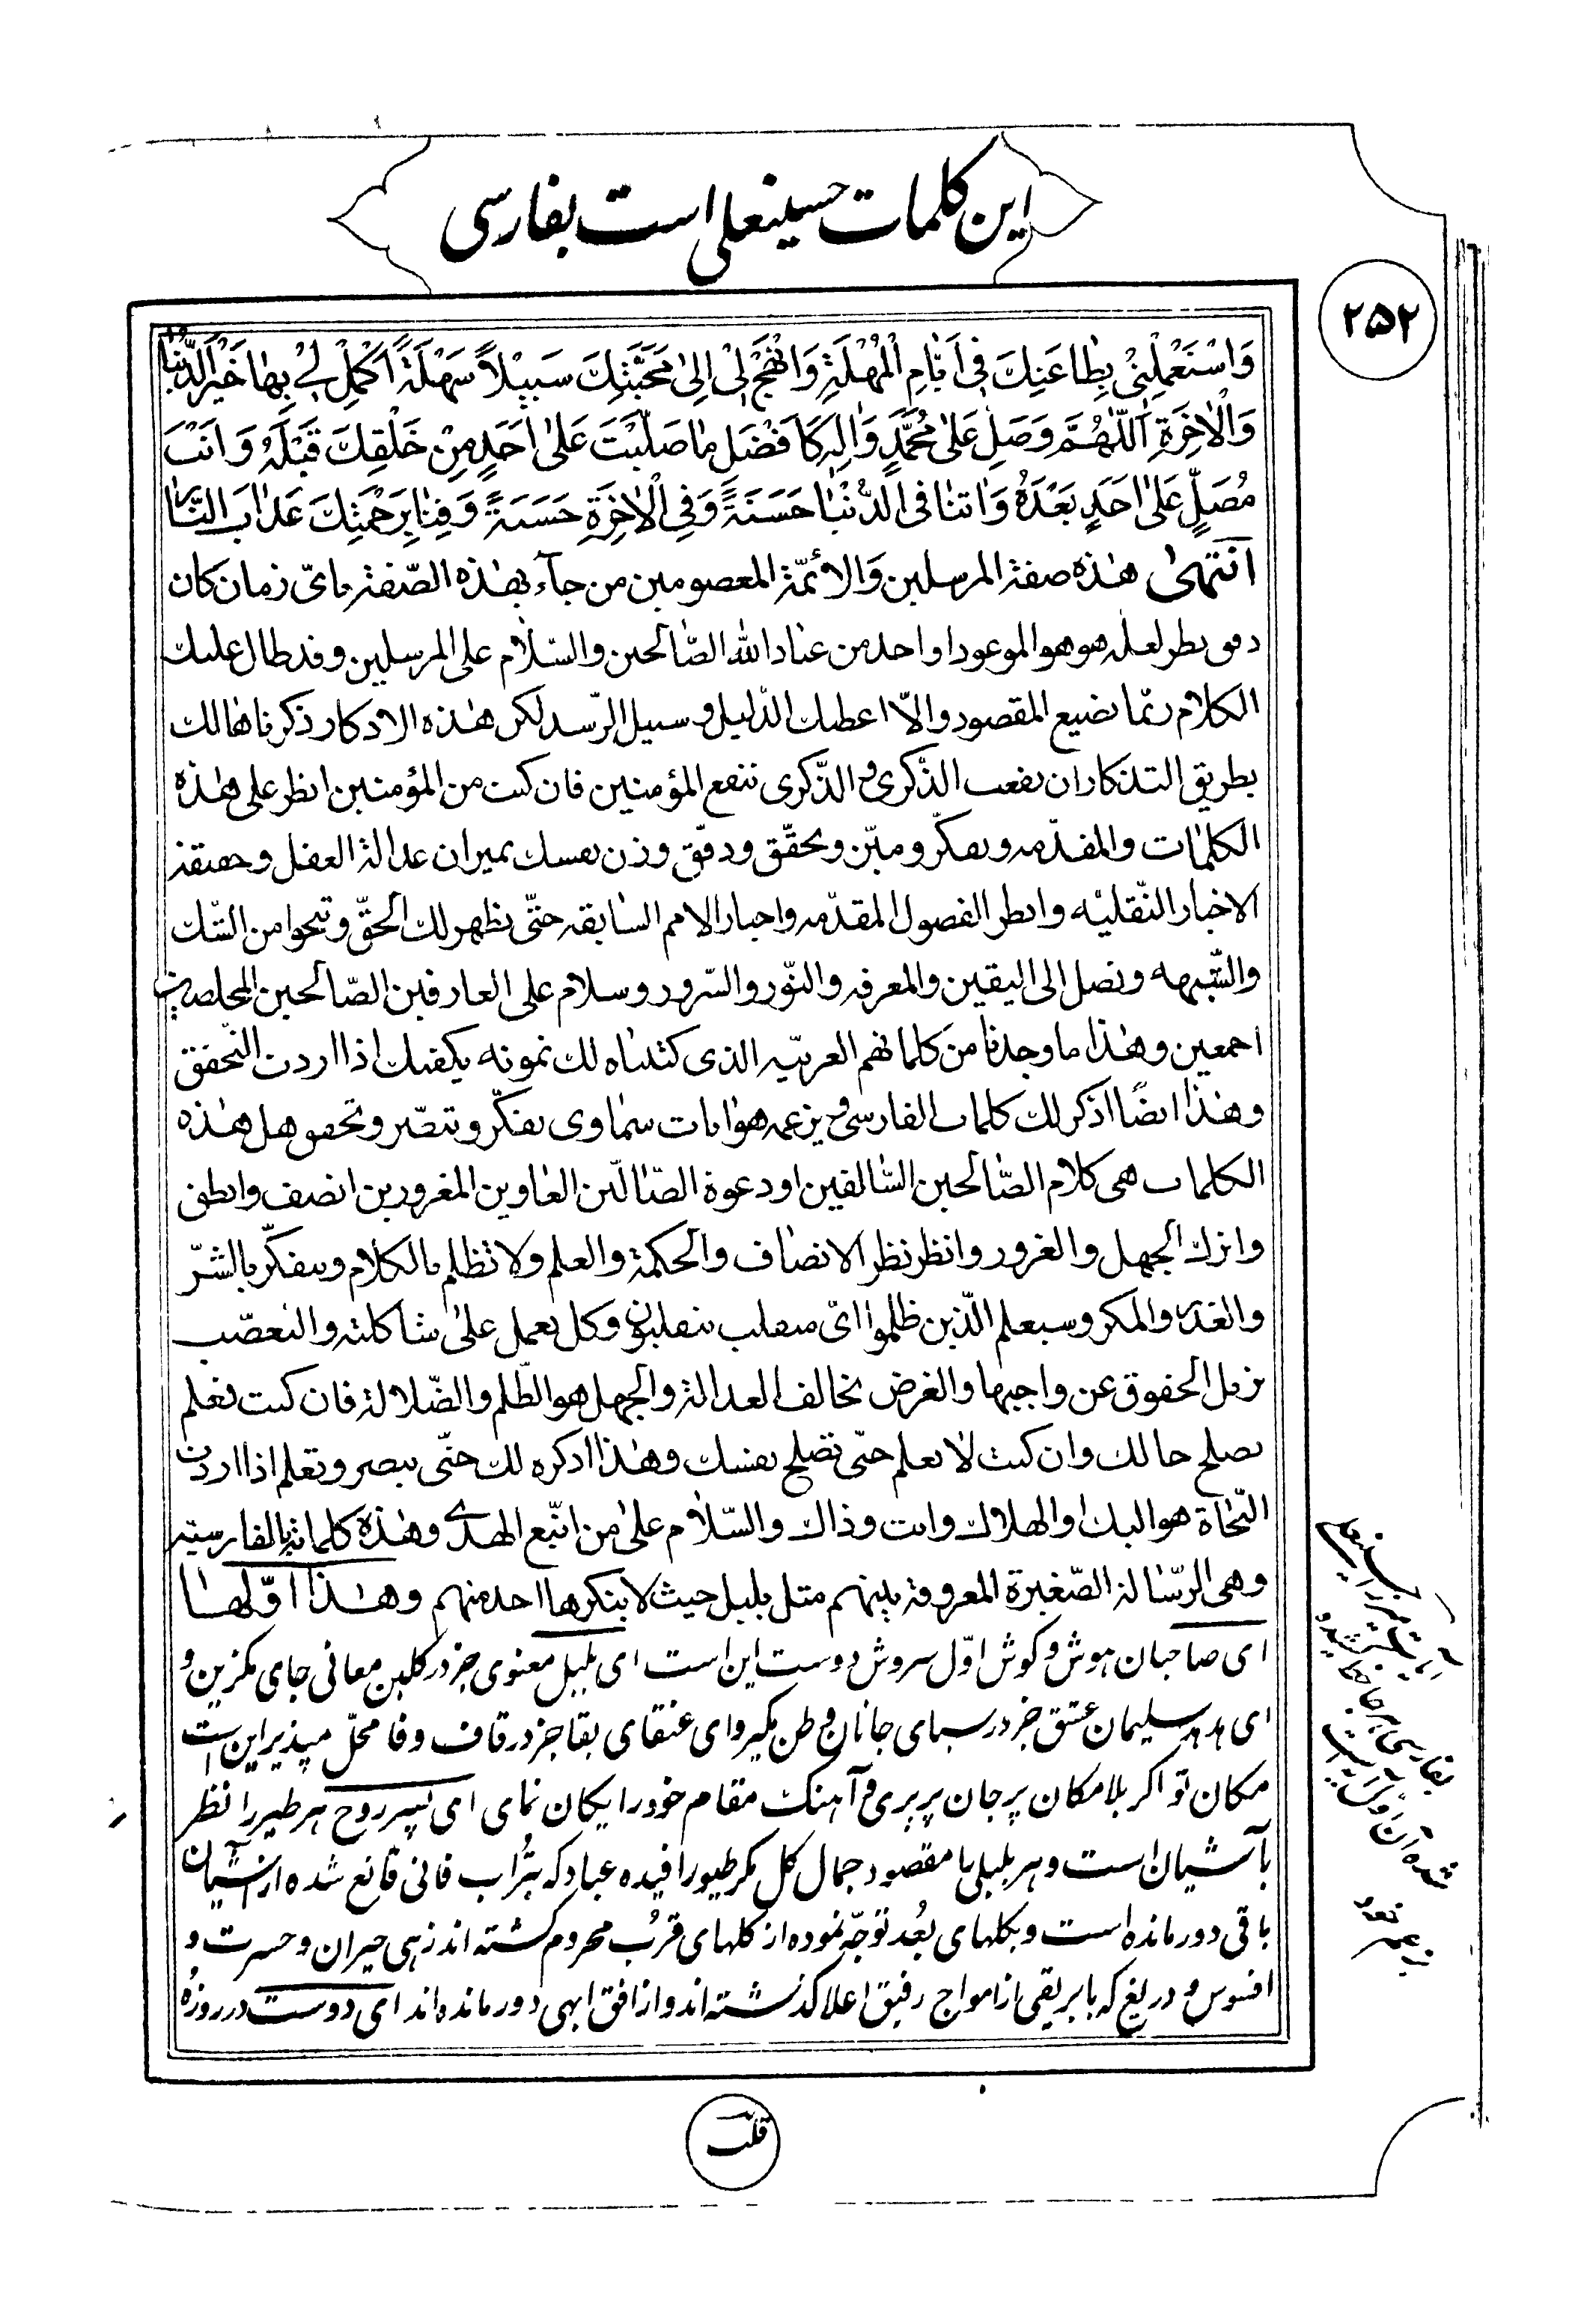 این کلمات حسینعلی است بفارسی
۲۵۲
وَاسْتَعْمِلْنِی بِطاعَتِكَ فِی اَیّامِ الْمُهْلَةِ وَانْهَجْ لِی اِلیٰ مَحَبَّتِكَ سَبیلاً سَهْلَةً اَکْمِلْ لِی بِهٰا خَیْرَ الدُّنْیٰا
وَالْاٰخِرَةِ اَللّٰهُمَّ وَصَلِّ عَلیٰ مُحَمَّدٍ وَاٰلِهِ کَاَفْضَلِ مٰا صَلَّیْتَ عَلیٰ اَحَدٍ مِنْ خَلْقِكَ قَبْلَهُ وَ اَنْتَ
مُصَلٍّ عَلیٰ اَحَدٍ بَعْدَهُ وَاٰتِنٰا فِی الدُّنْیٰا حَسَنَةً وَفِی الْاٰخِرَةِ حَسَنَةً وَقِنٰا بِرَحْمَتِكَ عَذٰابَ النّٰار
انتهیٰ هٰذه صفة المرسلین وَالائمّة المعصومین من جآء بهٰذه الصّفة بایّ زمان کان
دقق نظر لعله هو هو الموعود او احد من عباد اللّه الصّالحین والسّلام علی المرسلین و قد طال علیك
الکلام ربّما یضیع المقصود والّا اعطیك الدّلیل و سبیل الرّشد لکن هٰذه الاذکار ذکرناها لك
بطریق التذکار ان نفعت الذّکری و الذّکری تنفع المؤمنین فان کنت من المؤمنین انظر علی هٰذه
الکلمات والمقدّمه و تفکّر و میّن و تحقّق و دقّق وزن نفسك بمیزان عدالة العقل و حقیقة
الاخبار النّقلیّه وانظر الفصول المقدّمه واخبار الامم السّابقه حتّی یظهر لك الحقّ و تنجوا من الشّك
والشّبهه و تصل الی الیقین والمعرفه والنّور والسّرور و سلام علی العارفین الصّالحین المخلصین
اجمعین وهٰذا ما وجدنا من کلماتهم العربیّه الذی کتبناه لك نمونه یکفیك اذا اردت التّحقق
و هٰذا ایضًا اذکر لك کلمات الفارسی و یزعمه هو اٰیات سماوی تفکّر و تبصّر و تحقق هل هٰذه
الکلمات هی کلام الصّالحین السّالفین او دعوة الضّالّین الغاوین المغرورین انصف وانطق
واترك الجهل والغرور وانظر نظر الانصاف والحکمة والعلم ولا تظلم بالکلام و تتفکّر بالشّرّ
والغدر والمکر و سیعلم الّذین ظلموا ایّ منقلب ینقلبون و کل یعمل علیٰ شاکلته والتعصّب
یزیل الحقوق عن واجبها والغرض یخالف العدالة والجهل هو الظّلم والضّلالة فان کنت تعلم
تصلح حالك وان کنت لا تعلم حتّی تصلح نفسك وهٰذا اذکره لك حتّی تبصر و تعلم اذا اردت
النّجاة هو الیك او الهلاك وانت وذاك والسّلام علیٰ من اتّبع الهدی وهٰذه کلماته بالفارسیّه
وهی الرّسالة الصّغیرة المعروفة بینهم مثل بلبل حیث لا ینکرها احد منهم وهٰذا اوّلها
ای صاحبان هوش و کوش اوّل سروش دوست این است ای بلبل معنوی جز در کلبن معانی جای مکزین و
ای هدهد سلیمان عشق جز در سبای جانان وطن مکیر و ای عنقای بقا جز در قاف وفا محلّ مپذیر این است
مکان تو اکر بلامکان پر جان بر پری و آهنك مقام خود رایکان نمای ای پسر روح هر طیر را نظر
بآشیان است و هر بلبلی با مقصود جمال کل مکر طیور افیده عباد که بتُراب فانی قانع شده از آشیان
باقی دور مانده است و بکلهای بُعد توجّه نموده از کلهای قرُب محروم کشته اند زهی حیران و حسرت و
افسوس و دریغ که بابریقی از امواج رفیق اعلا کذشته اند و از افق ابهی دور مانده اند ای دوست در روزهٔ